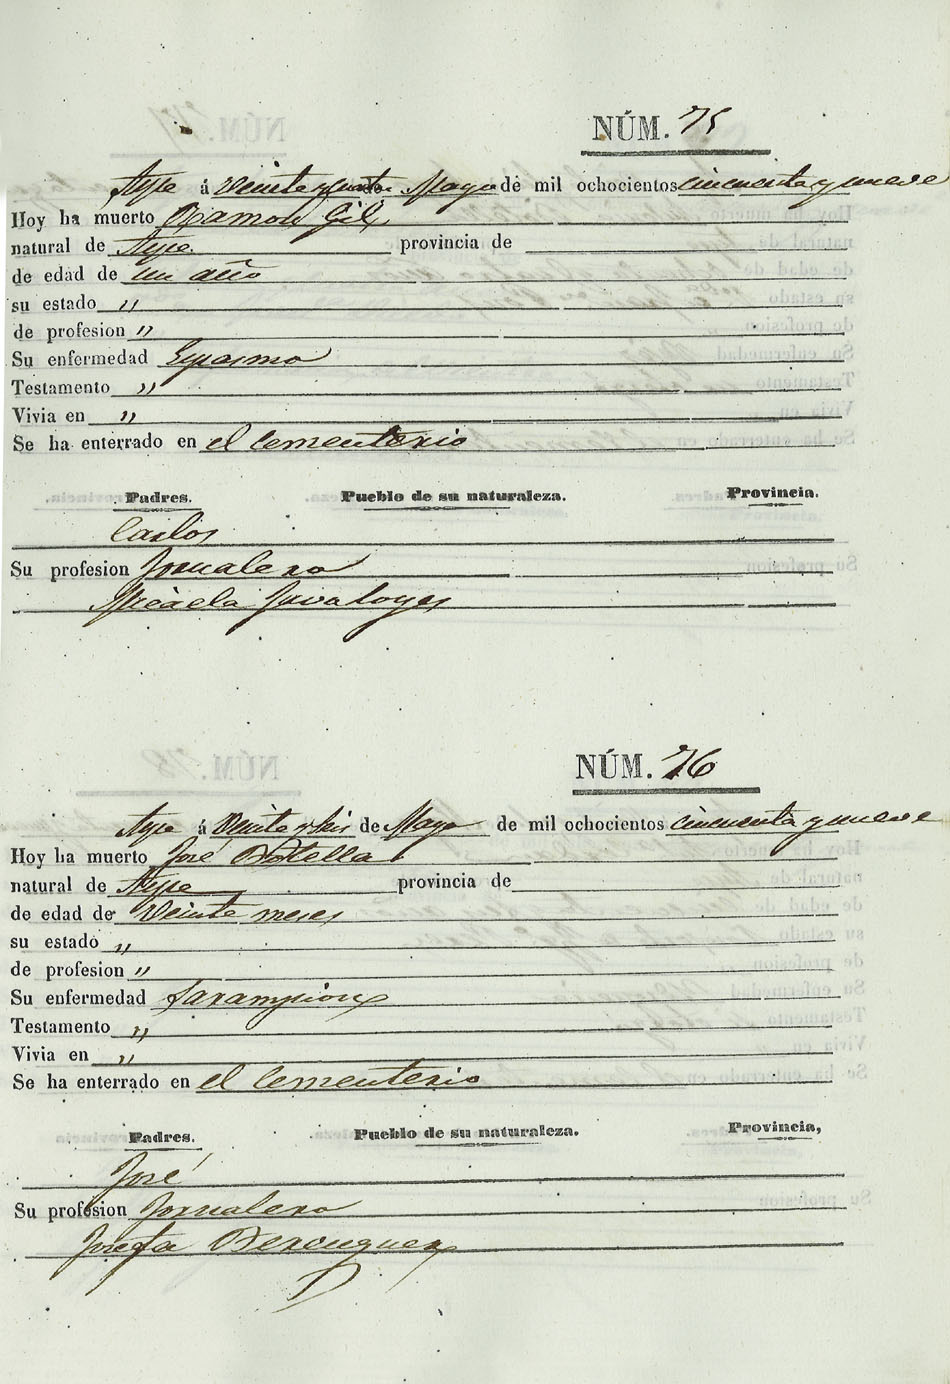 NÚM. 75
Aspe á Veinte y cuatro de Mayo de mil ochocientos cincuenta y nueve
Hoy ha muerto Ramon Gil
natural de Aspe provincia de
de edad de un año
su estado "
de profesion "
Su enfermedad Espasmo
Testamento "
Vivia en "
Se ha enterrado en el Cementerio
Padres. Pueblo de su naturaleza. Provincia.
Carlos
Su profesion Jornalero
Micaela
NÚM. 76
Aspe á Veinte y seis de Mayo de mil ochocientos cincuenta y nueve
Hoy ha muerto José Botella
natural de Aspe provincia de
de edad de Veinte meses
su estado "
de profesion "
Su enfermedad Sarampion
Testamento "
Vivia en "
Se ha enterrado en el Cementerio
Padres. Pueblo de su naturaleza. Provincia,
José
Su profesion Jornalero
Josefa Berenguer